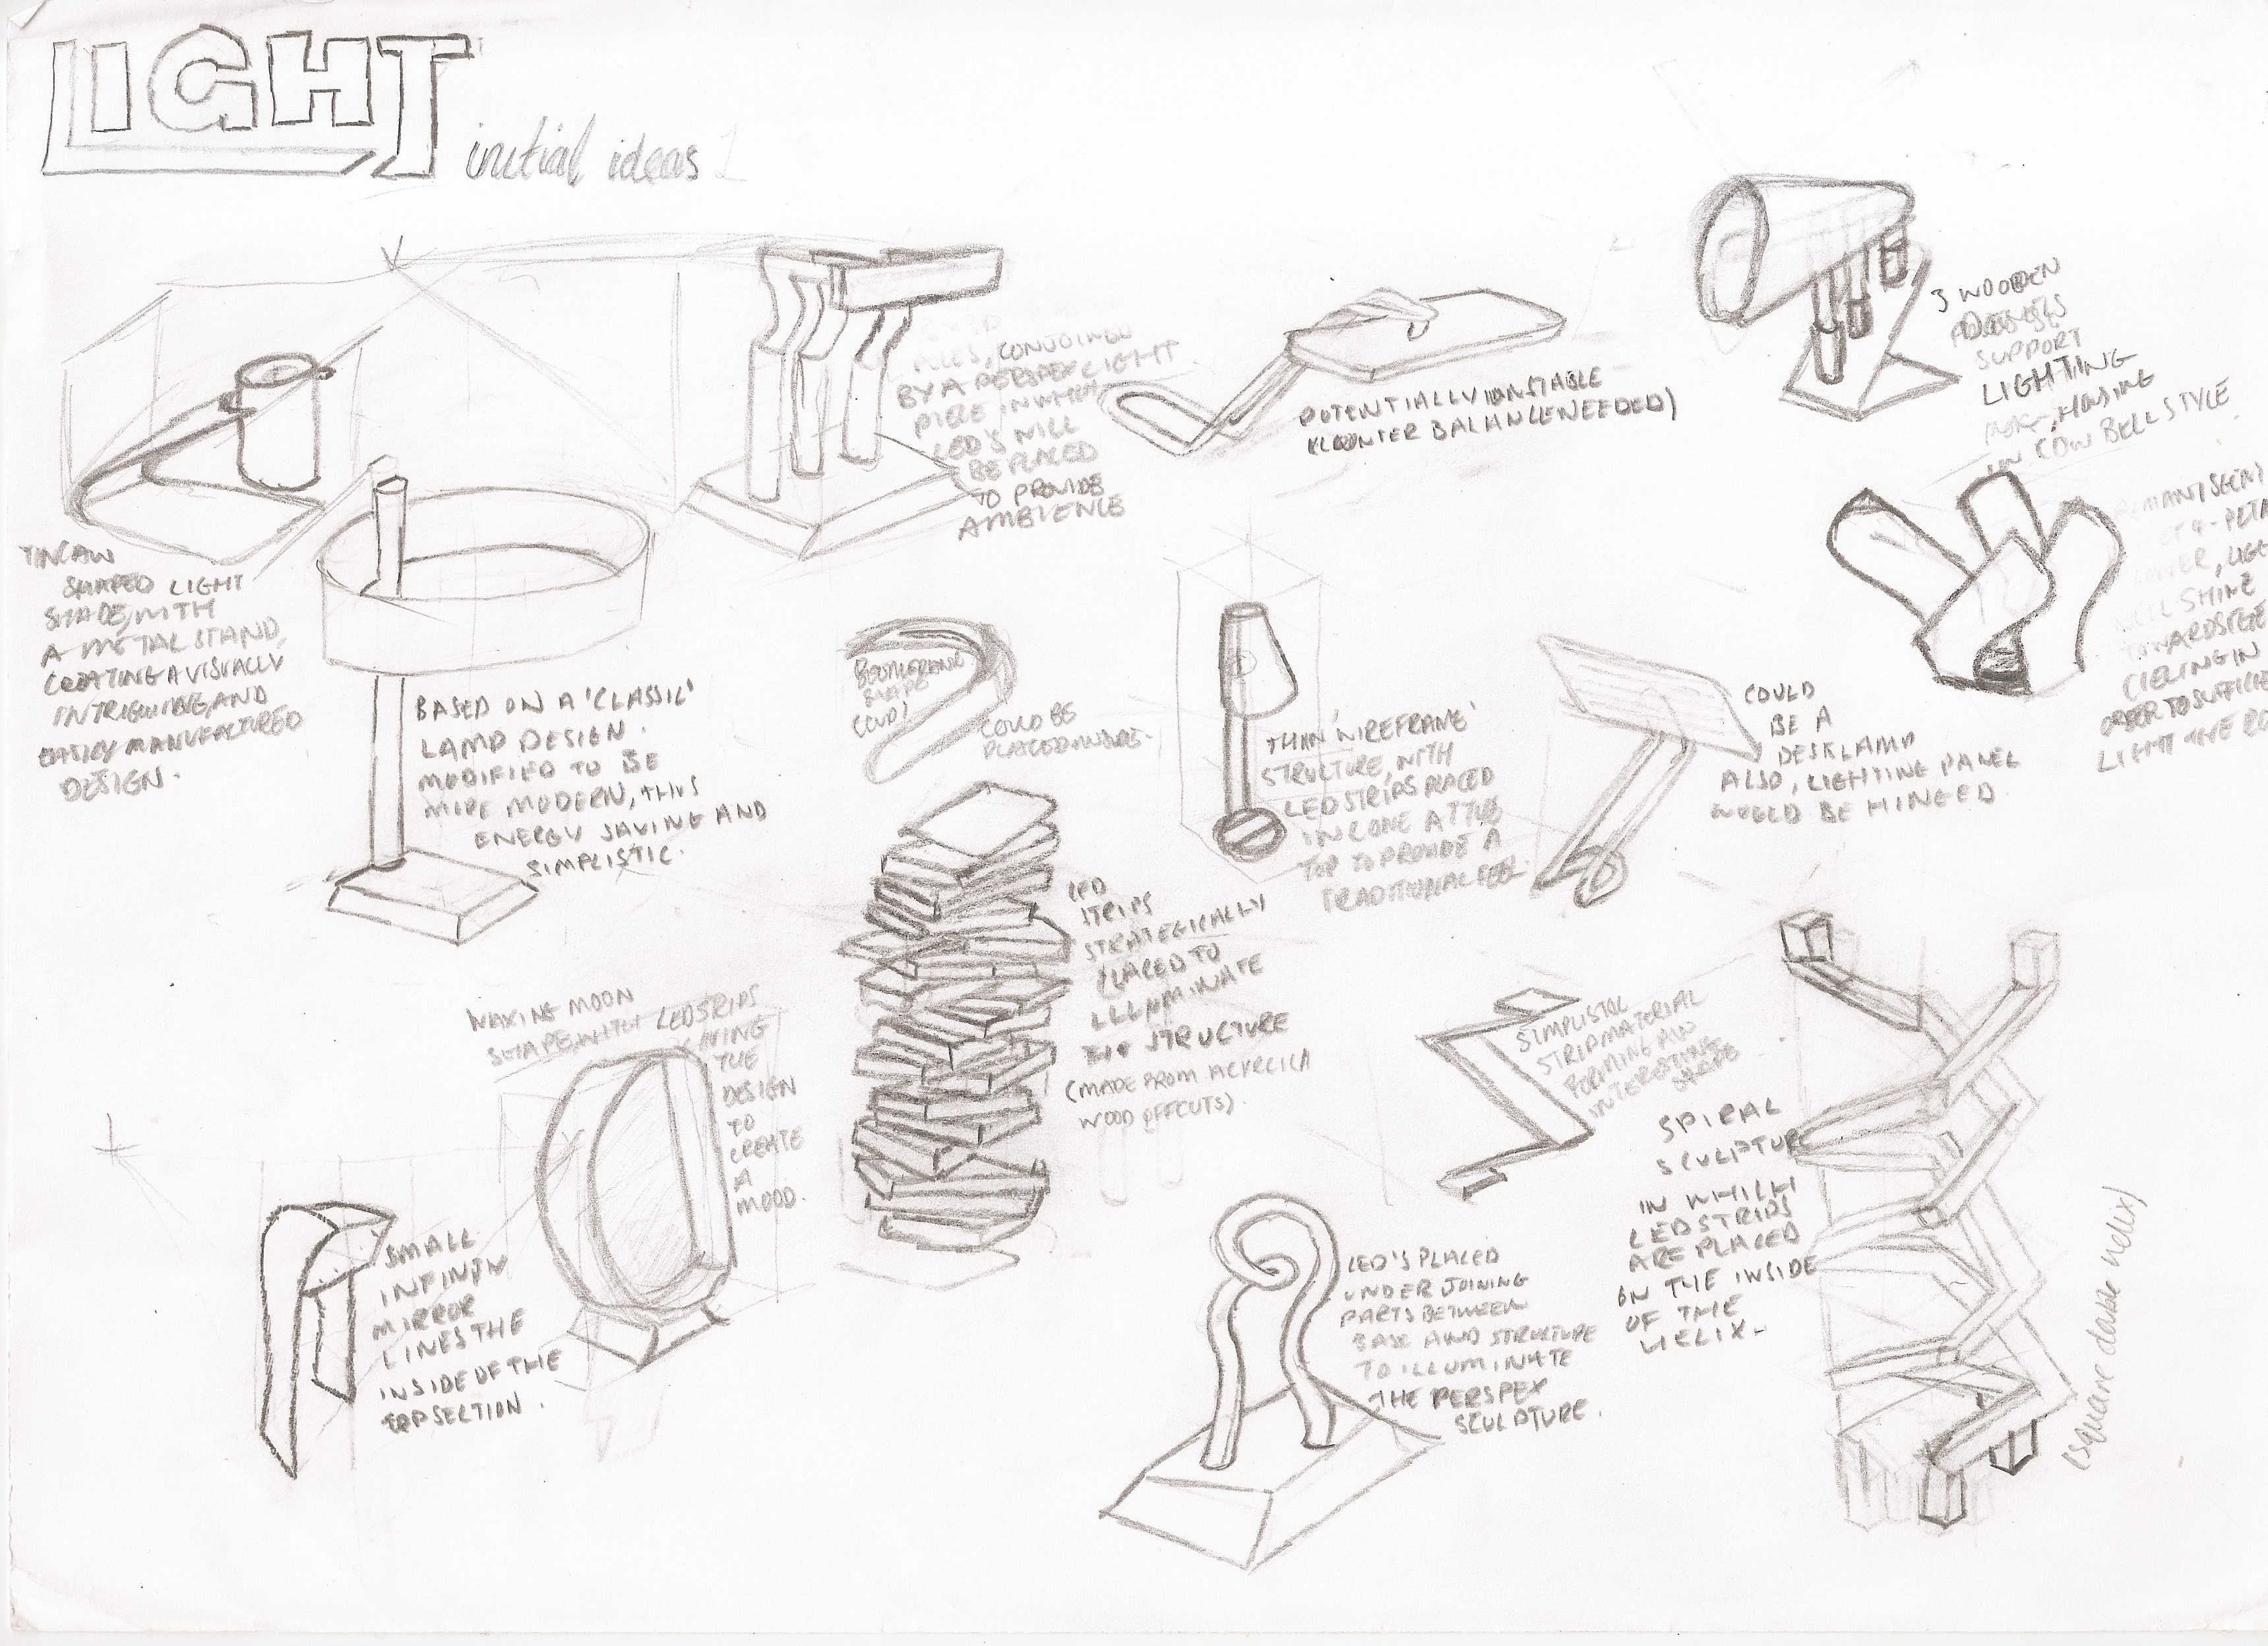 LIGHT
initial ideas 1
SHAPED LIGHT
SHADE, WITH
A METAL STAND,
CREATING A VISUALLY
AND
EASILY MANUFACTURED
DESIGN.
BASED ON A 'CLASSIC'
LAMP DESIGN.
MODIFIED TO BE
MORE MODERN, THUS
ENERGY SAVING AND
SIMPLISTIC.
POLES, CONJOINED
BY A PERSPEX LIGHT
PIECE IN WHICH
LED'S WILL
BE PLACED
TO PROVIDE
AMBIENCE
POTENTIALLY UNSTABLE
(COUNTER BALANCE NEEDED)
3 WOODEN
SUPPORT
LIGHTING
HOUSING
IN COW BELL STYLE
SHINE
TOWARDS THE
CIELING IN
ORDER TO
LIGHT THE
SHAPE
COULD BE
PLACED
THIN 'WIREFRAME'
STRUCTURE, WITH
LED STRIPS PLACED
IN CONE AT THE
TOP TO PROVIDE A
TRADITIONAL FEEL.
COULD
BE A
DESKLAMP
ALSO, LIGHTING PANEL
WOULD BE HINGED.
LED
STRIPS
STRATEGICALLY
PLACED TO
ILLUMINATE
THE STRUCTURE
(MADE FROM
WOOD OFFCUTS).
WAXING MOON
SHAPE, WITH LED STRIPS
THE
DESIGN
TO
CREATE
A
MOOD.
SMALL
INFINITY
MIRROR
LINES THE
INSIDE OF THE
TOP SECTION.
SIMPLISTIC
STRIP MATERIAL
FORMING AN
INTERESTING
SHAPE
SPIRAL
SCULPTURE
IN WHICH
LED STRIPS
ARE PLACED
ON THE INSIDE
OF THE
HELIX.
(square double helix)
LED'S PLACED
UNDER JOINING
PARTS BETWEEN
BASE AND STRUCTURE
TO ILLUMINATE
THE PERSPEX
SCULPTURE.